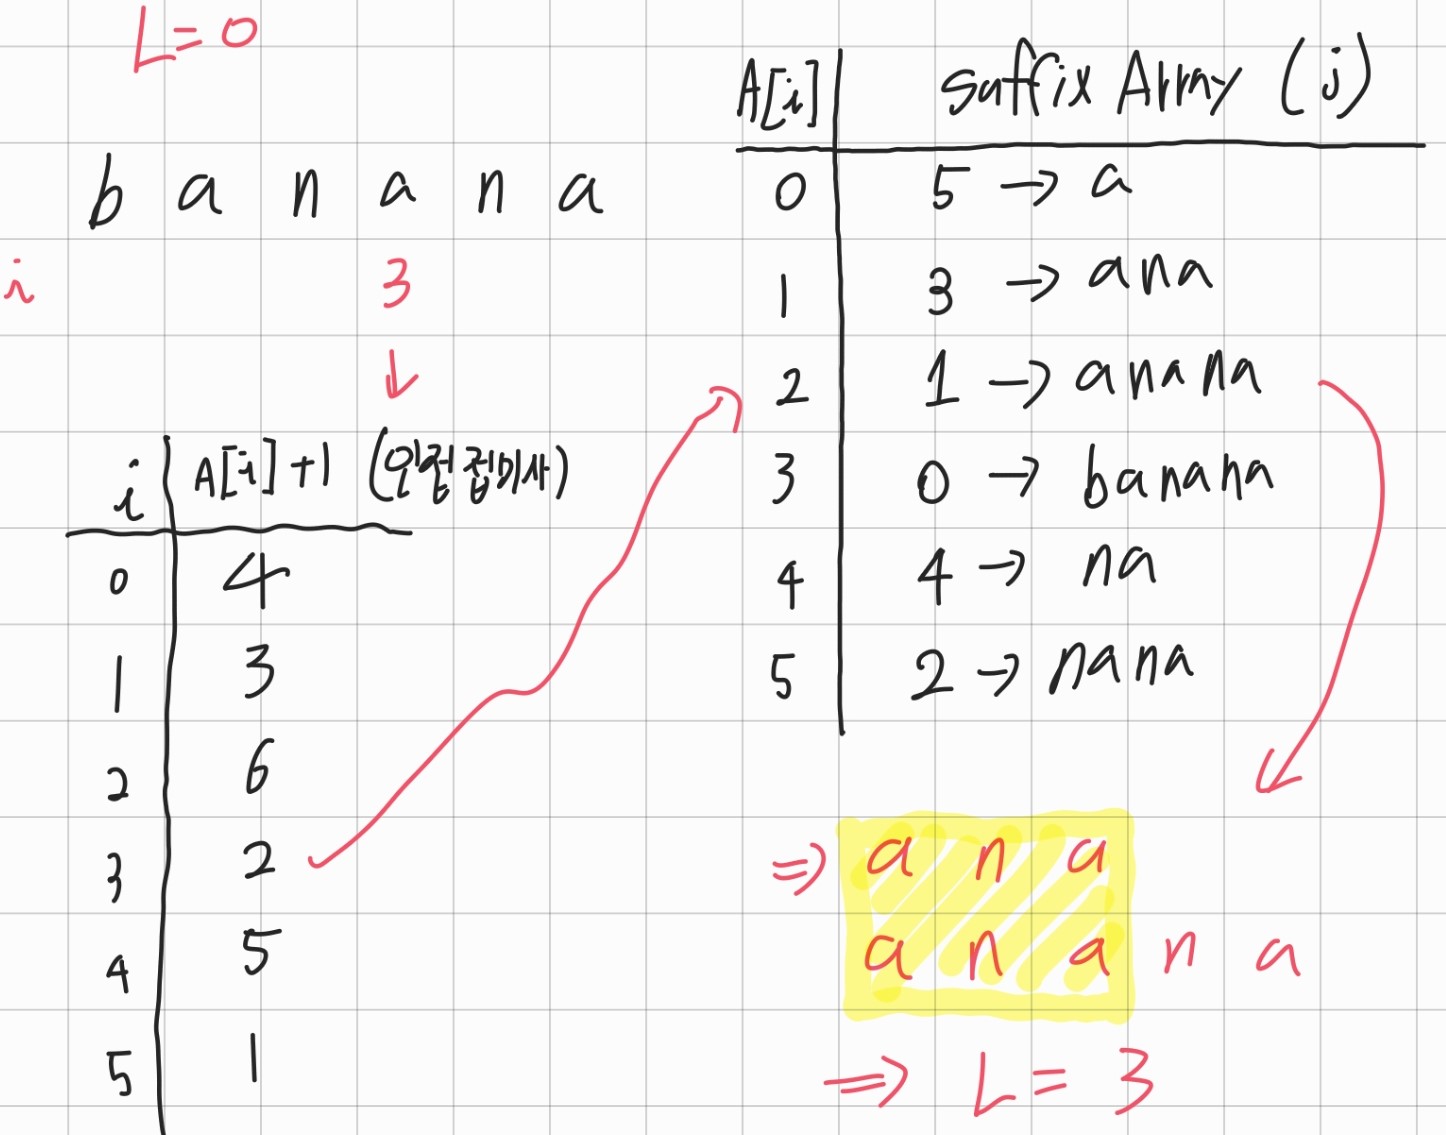 L = 0
b a n a n a
i 3
↓
i A[i]+1 (인접접미사)
0 4
1 3
2 6
3 2
4 5
5 1
A[i] Suffix Array (j)
0 5 → a
1 3 → ana
2 1 → anana
3 0 → banana
4 4 → na
5 2 → nana
⇒ a n a
a n a n a
⇒ L = 3